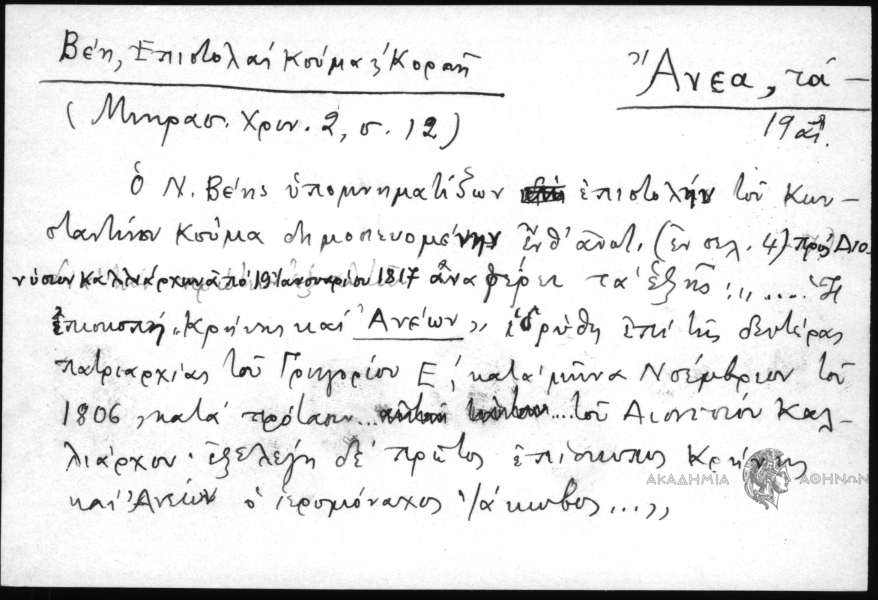 Βέη, Ἐπιστολαὶ Κούμα & Κοραῆ
Ἄνεα, τά —
(Μικρασ. Χρον. 2, σ. 12)
19 αἰ.
Ὁ Ν. Βέης ὑπομνηματίζων ἐπιστολὴν τοῦ Κων-
σταντίνου Κούμα δημοσιευομένην ἐνθ' ἀνωτ. (ἐν σελ. 4) πρὸς Διο-
νύσιον Καλλιάρχην ἀπό 19 Ἰανουαρίου 1817 ἀναφέρει τὰ ἑξῆς: „.... Ἡ
ἐπισκοπή „Κρήνης καὶ Ἀνέων„ ἱδρύθη ἐπὶ τῆς δευτέρας
πατριαρχίας τοῦ Γρηγορίου Ε', κατὰ μῆνα Νοέμβριον τοῦ
1806, κατὰ πρότασιν ... τοῦ Διονυσίου Καλ-
λιάρχου· ἐξελέγη δὲ πρῶτος ἐπίσκοπος Κρήνης
καὶ Ἀνέων ὁ ἱερομόναχος Ἰάκωβος ...„
ΑΚΑΔΗΜΙΑ ΑΘΗΝΩΝ